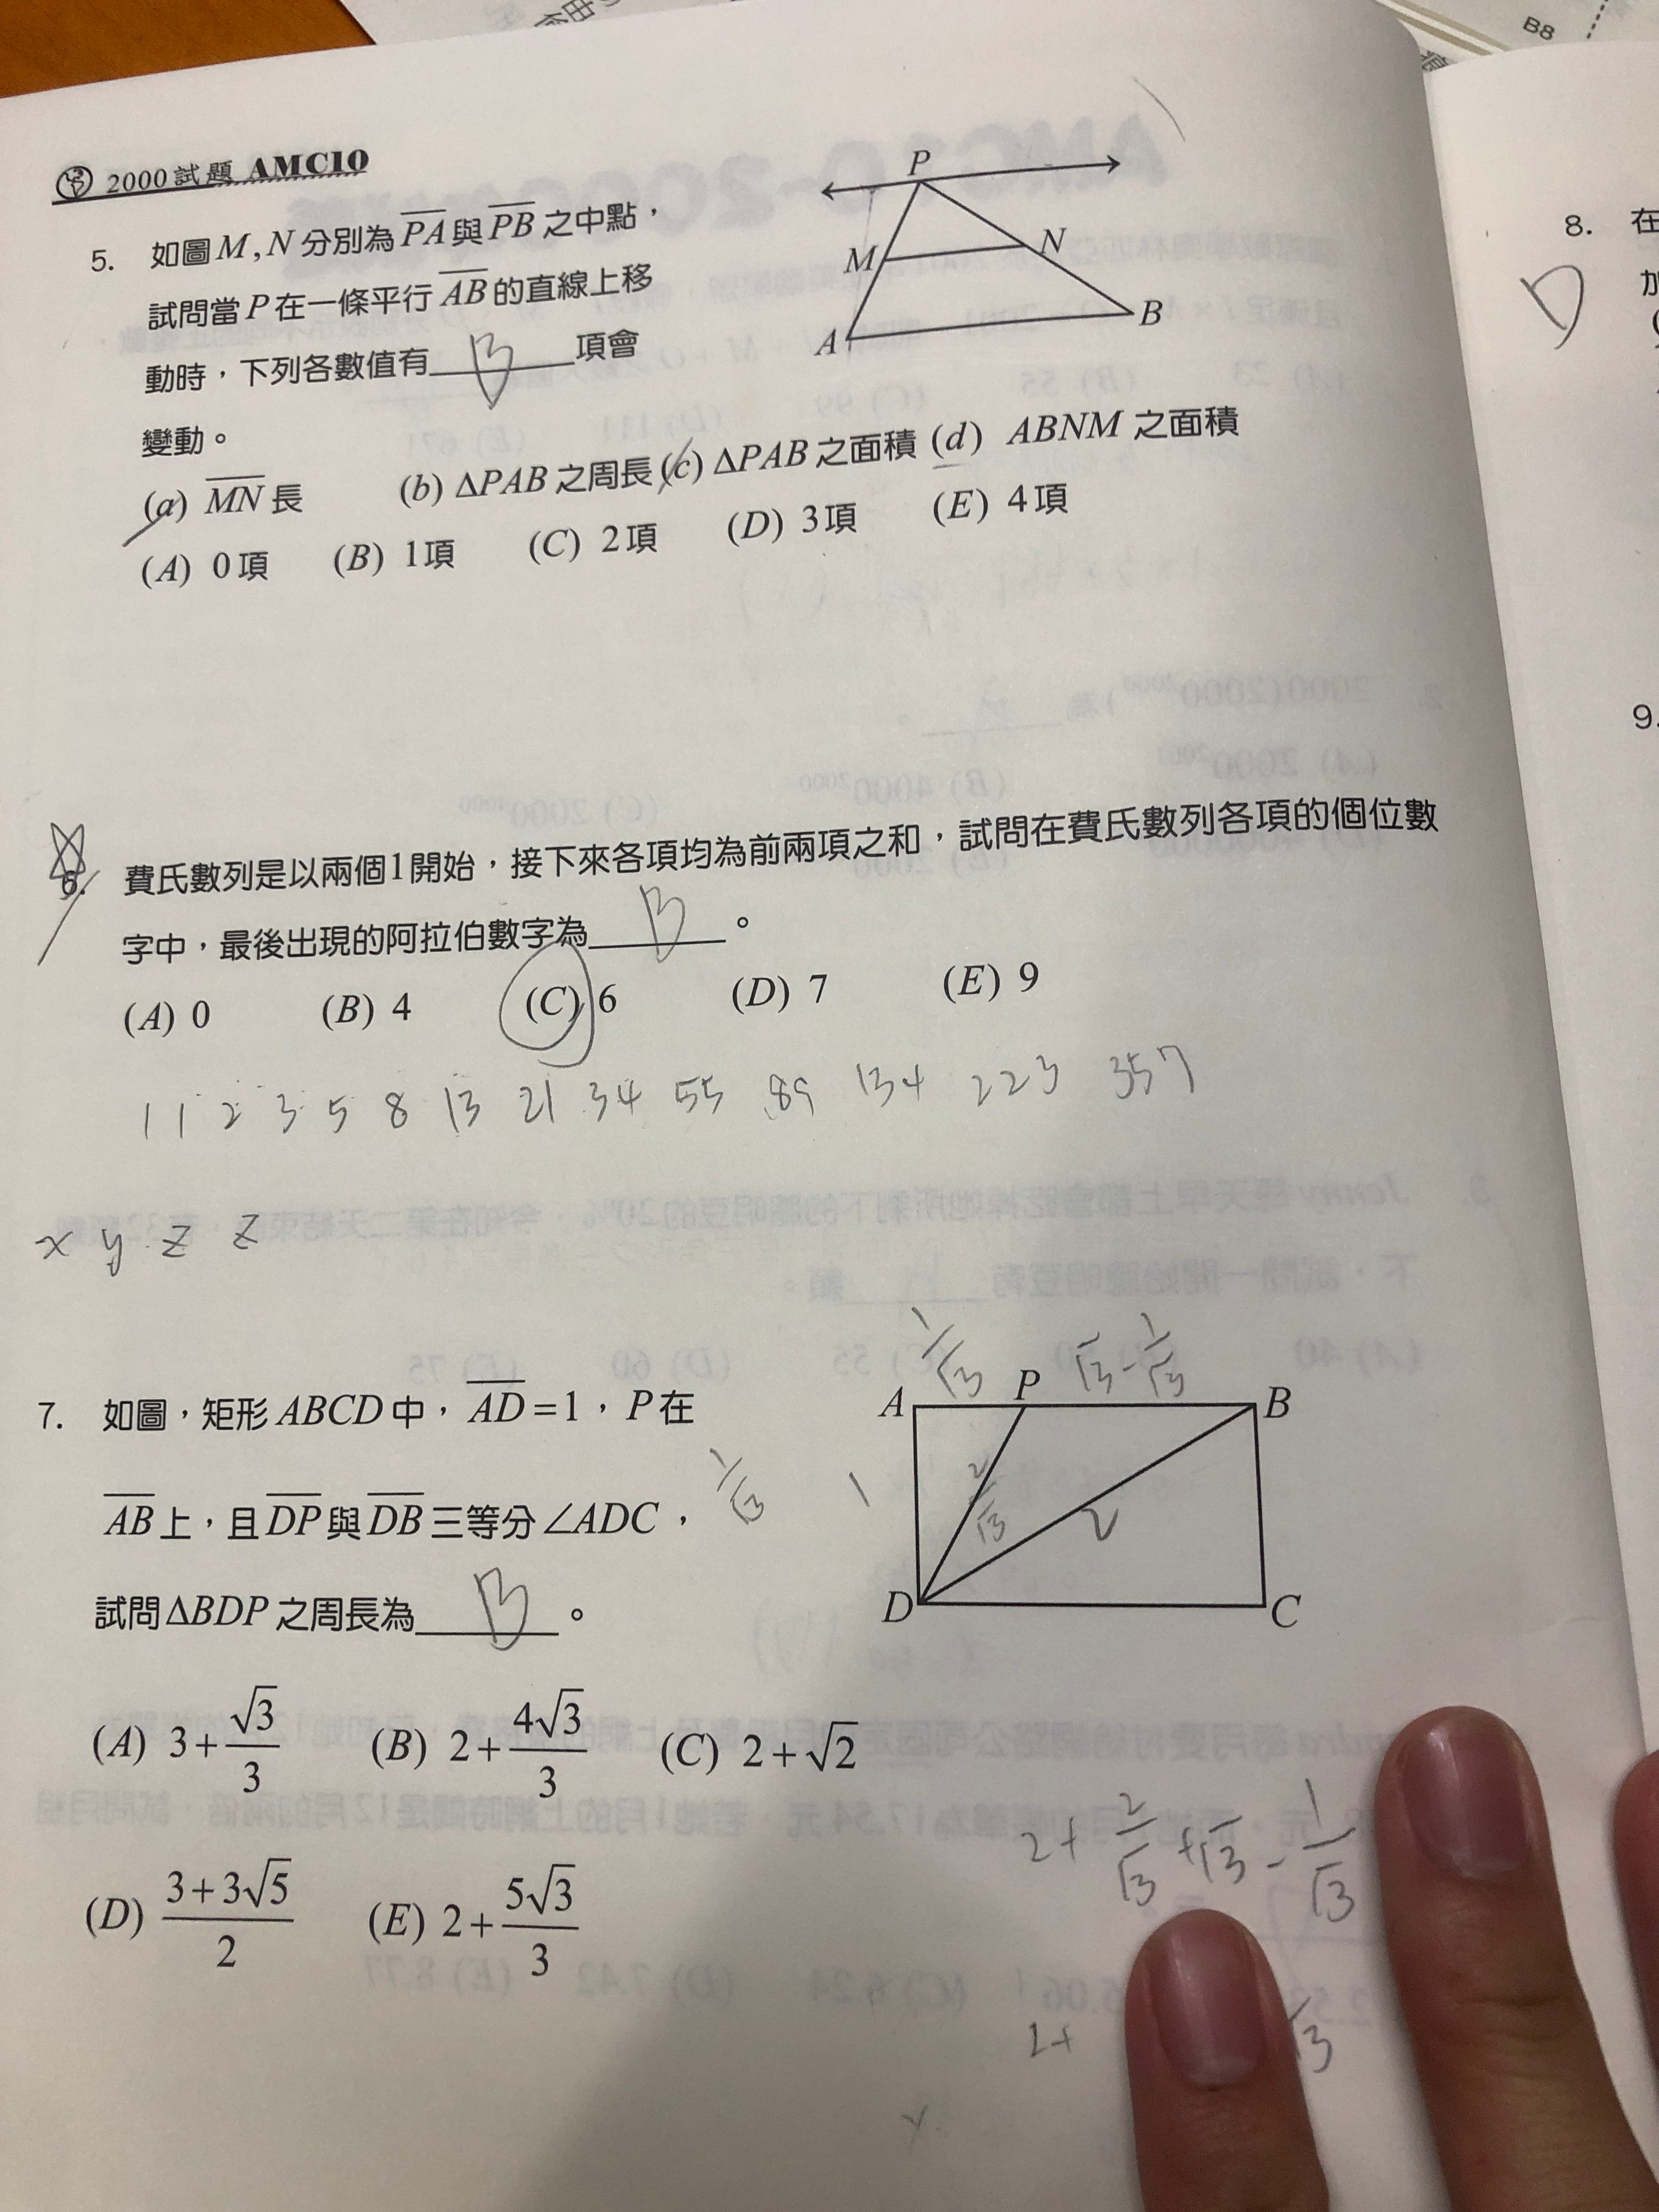 B8
2000試題 AMC10
5. 如圖M,N分別為PA與PB之中點，
試問當P在一條平行AB的直線上移
動時，下列各數值有 B 項會
變動。
P
M
N
A
B
(a) MN長 (b) ΔPAB之周長 (c) ΔPAB之面積 (d) ABNM之面積
(A) 0項 (B) 1項 (C) 2項 (D) 3項 (E) 4項
6. 費氏數列是以兩個1開始，接下來各項均為前兩項之和，試問在費氏數列各項的個位數
字中，最後出現的阿拉伯數字為 B 。
(A) 0 (B) 4 (C) 6 (D) 7 (E) 9
1 1 2 3 5 8 13 21 34 55 89 134 223 357
x y z z
7. 如圖，矩形ABCD中，AD=1，P在
AB上，且DP與DB三等分∠ADC，
試問ΔBDP之周長為 B 。
1/√3
1/√3 √3-1/√3
A P B
1 2/√3 2
D C
(A) 3+√3/3 (B) 2+4√3/3 (C) 2+√2
(D) (3+3√5)/2 (E) 2+5√3/3
2+2/√3+√3-1/√3
2+
√3
8. 在
D
加
9.